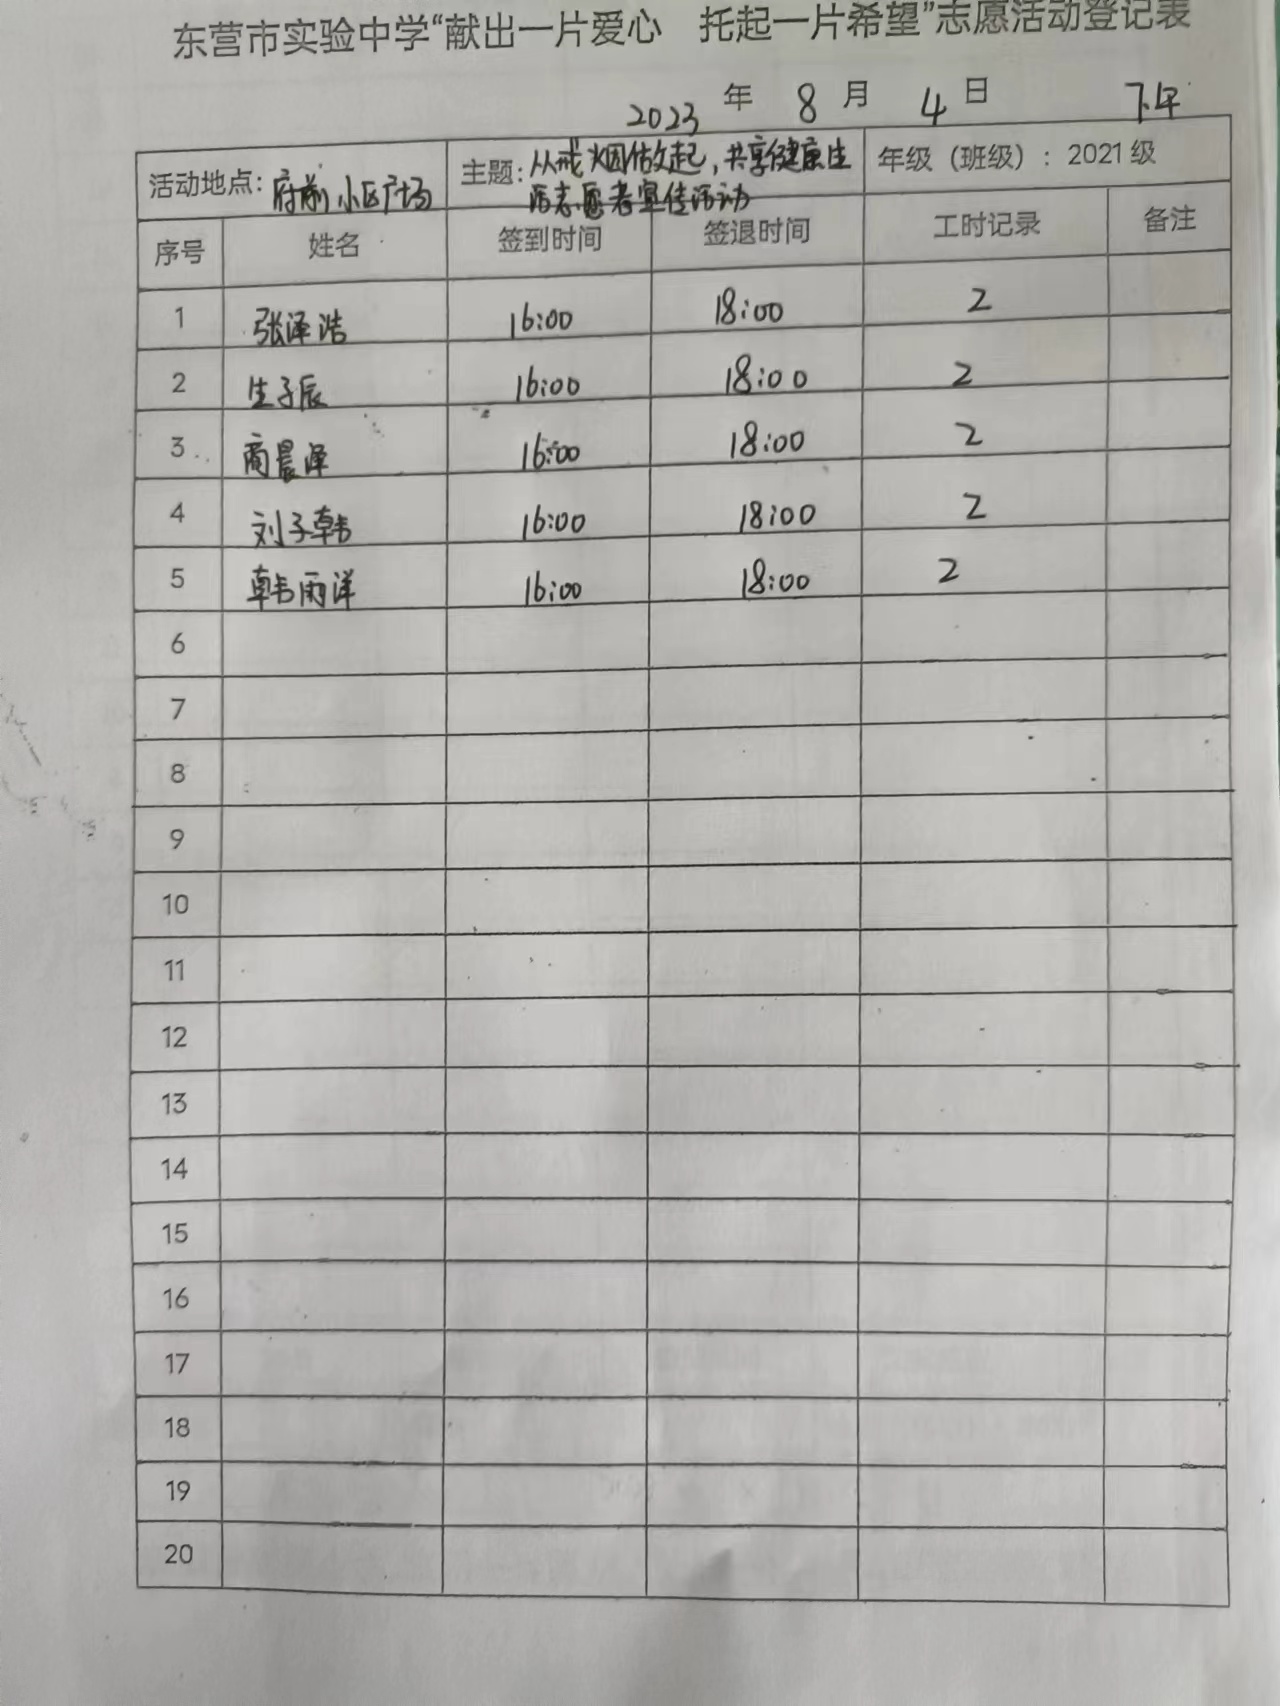 东营市实验中学“献出一片爱心 托起一片希望”志愿活动登记表
2023 年 8 月 4 日 下午
活动地点：府前小区广场 主题：从戒烟做起，共享健康生活志愿者宣传活动 年级（班级）：2021级
序号 姓名 签到时间 签退时间 工时记录 备注
1 张泽浩 16:00 18:00 2
2 生子辰 16:00 18:00 2
3 商晨泽 16:00 18:00 2
4 刘子韩 16:00 18:00 2
5 韩雨洋 16:00 18:00 2
6
7
8
9
10
11
12
13
14
15
16
17
18
19
20